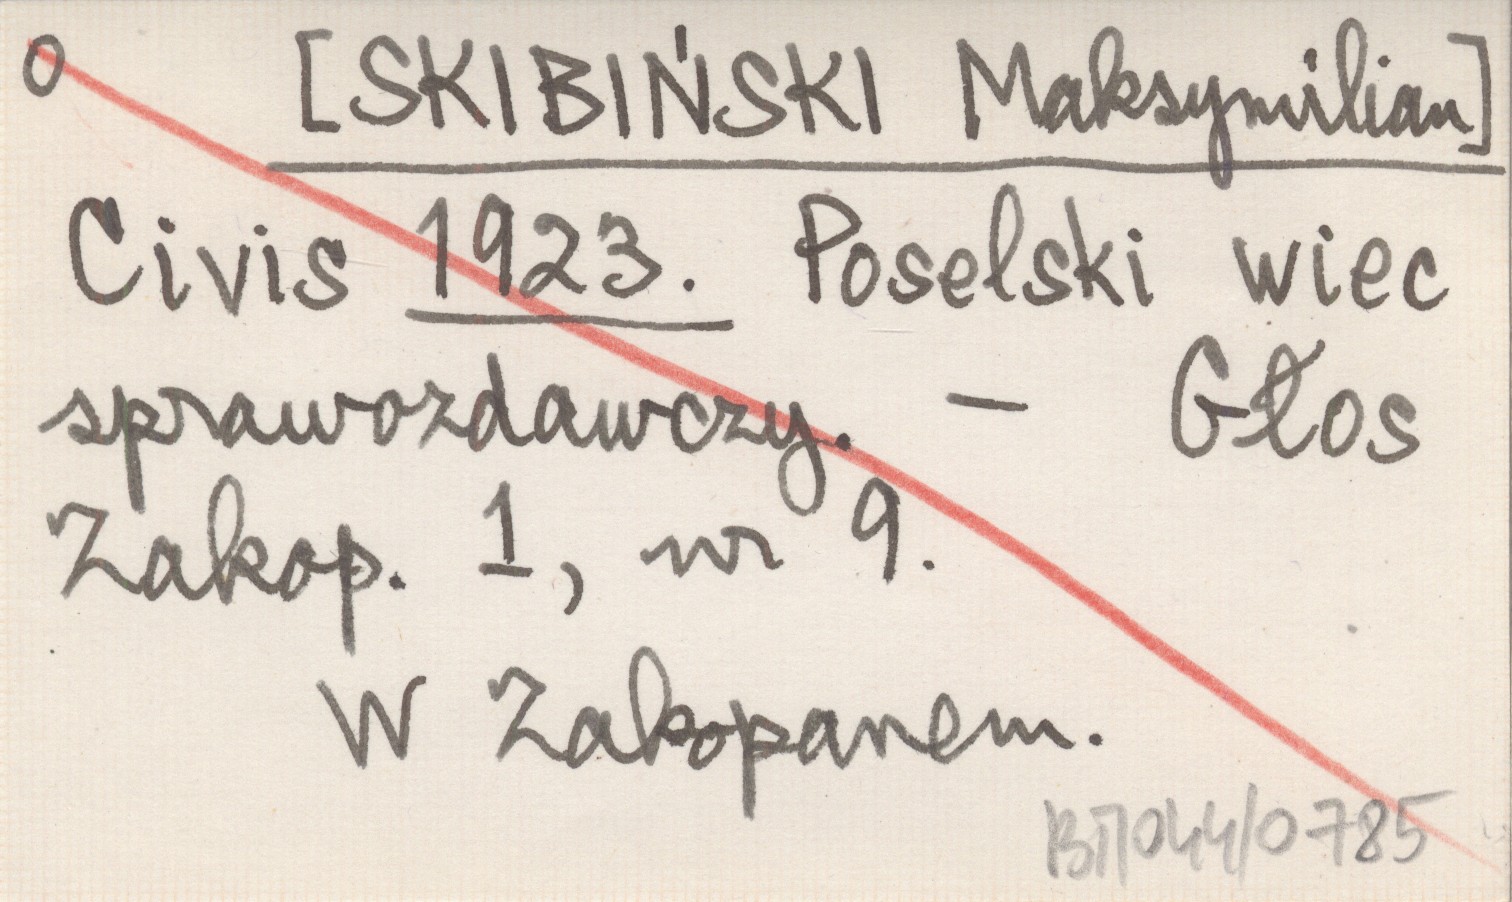 O [SKIBIŃSKI Maksymilian]
Civis 1923. Poselski wiec
sprawozdawczy. – Głos
Zakop. 1, nr 9.
W Zakopanem.
BT/044/0785